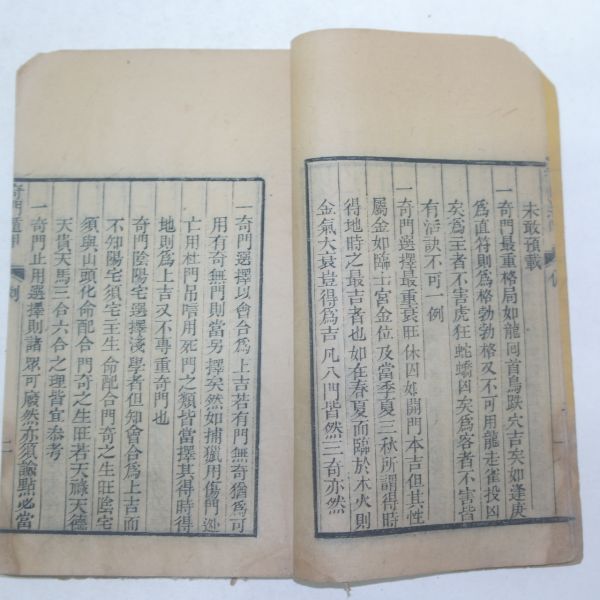 未敢預載
一奇門最重格局如龍囘首鳥跌穴吉矣如逢庚
爲直符則爲格勃勃格又不可用龍走雀投凶
矣爲王者不害虎狂蛇蟜凶矣爲客者不害皆
有活訣不可一例
一奇門選擇最重衰旺休囚如開門本吉但其性
屬金如臨士宮金位及當季夏三秋所謂得時
得地時之最吉者也如在春夏而臨於木火則
金氣大衰豈得爲吉凡八門皆然三奇亦然
一奇門選擇以會合爲上吉若有門無奇猶爲可
用有奇無門則當另擇矣然如捕獵用傷門逃
亡用杜門吊喑用死門之類皆當擇其得時得
地則爲上吉又不專重奇門也
奇門陰陽宅選擇淺學者但知會合爲上吉而
不知陽宅須宅主生命配合門奇之生旺陰宅
須與山頭化命配合門奇之生旺若天祿天德
天貴天馬三合六合之理皆宜叅考
一奇門止用選擇則諸眾可廢然亦須論點必當
奇門遁甲
例
二